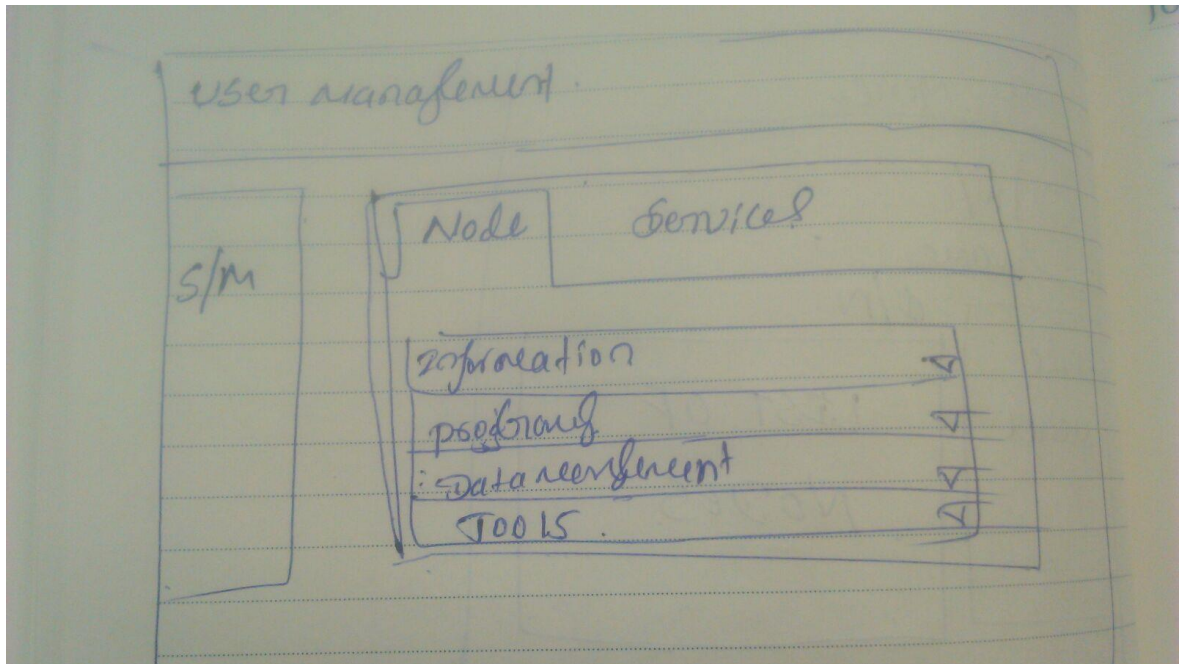 User management.
Node Services
S/M
Information
programs
Data management
TOOLS.